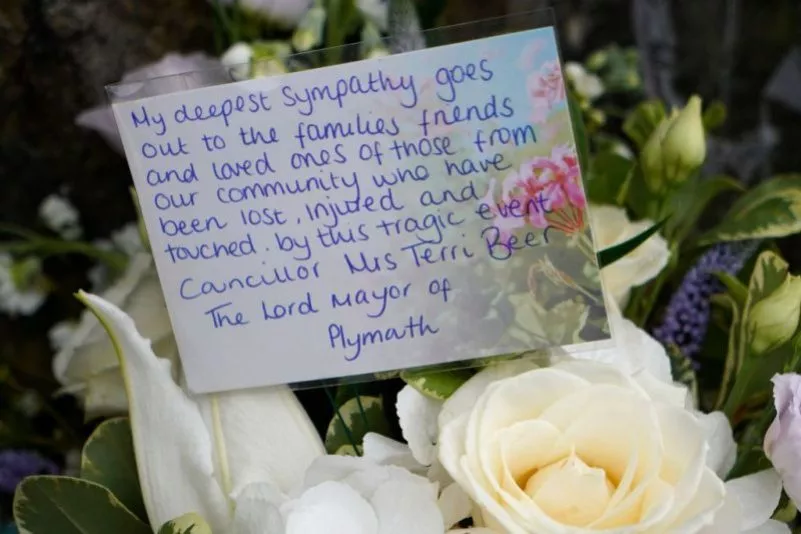 My deepest sympathy goes
out to the families friends
and loved ones of those from
our community who have
been lost, injured and
touched by this tragic event
Councillor Mrs Terri Beer
The Lord Mayor of
Plymouth